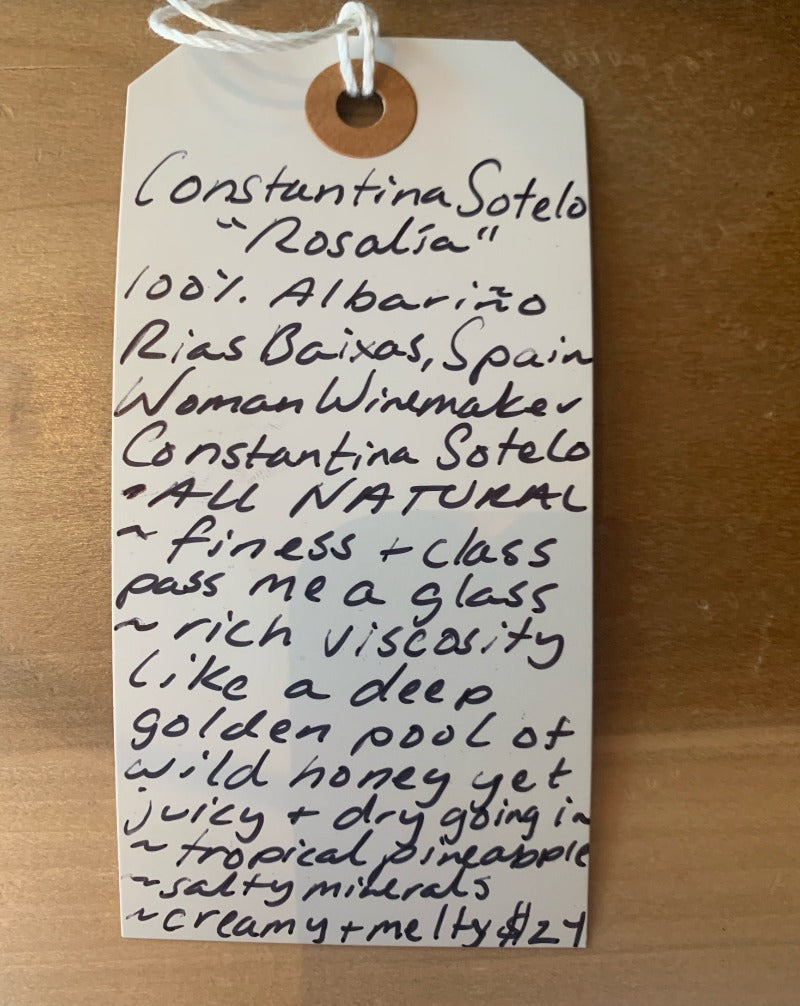 Constantina Sotelo
"Rosalía"
100% Albariño
Rias Baixas, Spain
Woman Winemaker
Constantina Sotelo
•ALL NATURAL
~ finess + class
pass me a glass
~ rich viscosity
like a deep
golden pool of
wild honey yet
juicy + dry going in
~ tropical pineapple
~salty minerals
~creamy + melty $24